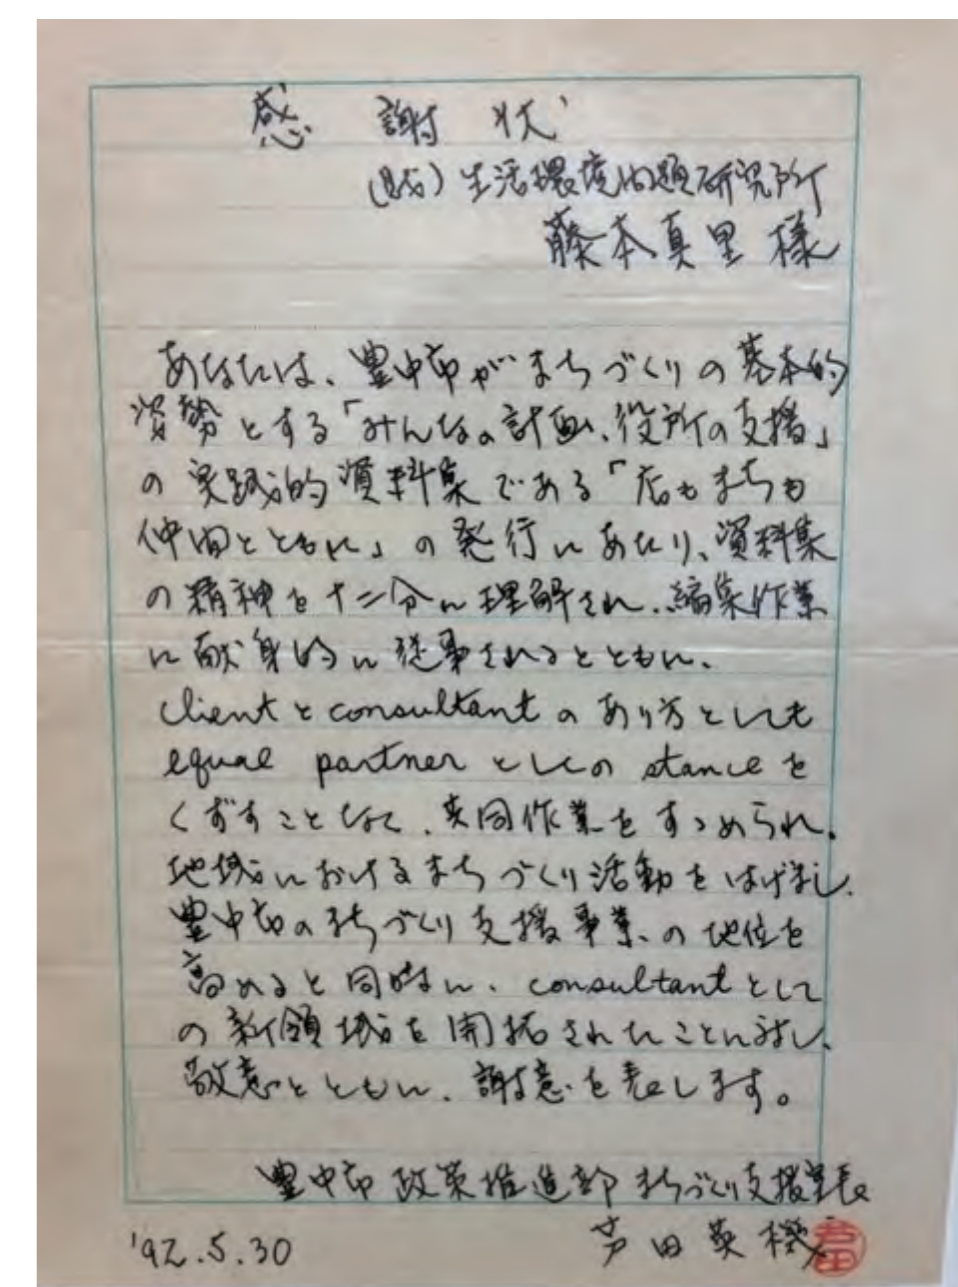 感謝状
(財)生活環境問題研究所
藤本真里様
あなたは、豊中市がまちづくりの基本的
姿勢とする「みんなの計画、役所の支援」
の実践的資料集である「店もまちも
仲間とともに」の発行にあたり、資料集
の精神を十二分に理解され、編集作業
に献身的に従事されるとともに、
clientとconsultantのあり方としても
equal partnerとしてのstanceを
くずすことなく、共同作業をすゝめられ、
地域におけるまちづくり活動をはげまし、
豊中市のまちづくり支援事業の地位を
高めると同時に、consultantとして
の新領域を開拓されたことに対し、
敬意とともに、謝意を表します。
豊中市政策推進部まちづくり支援室長
芦田英機
芦田
'92.5.30